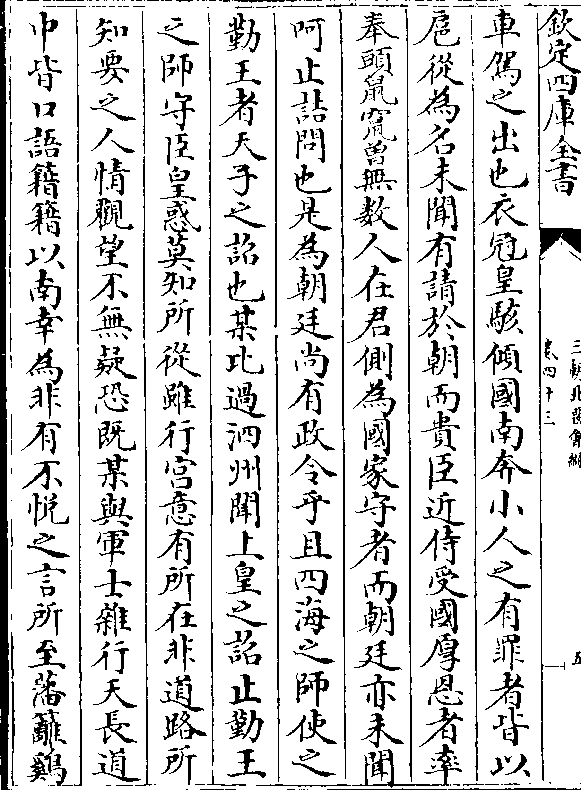 欽定四庫全書
三朝北盟會編
卷四十三
五
車駕之出也衣冠皇駭傾國南奔小人之有罪者皆以
扈從為名未聞有請於朝而貴臣近侍受國厚恩者率
奉頭鼠竄曽無数人在君側為國家守者而朝廷亦未聞
呵止詰問也是為朝廷尚有政令乎且四海之師使之
勤王者天子之詔也某比過泗州聞上皇之詔止勤王
之師守臣皇惑莫知所從雖行宫意有所在非道路所
知要之人情觀望不無疑恐既某與軍士雜行天長道
中皆口語籍籍以南幸為非有不悦之言所至藩籬鷄